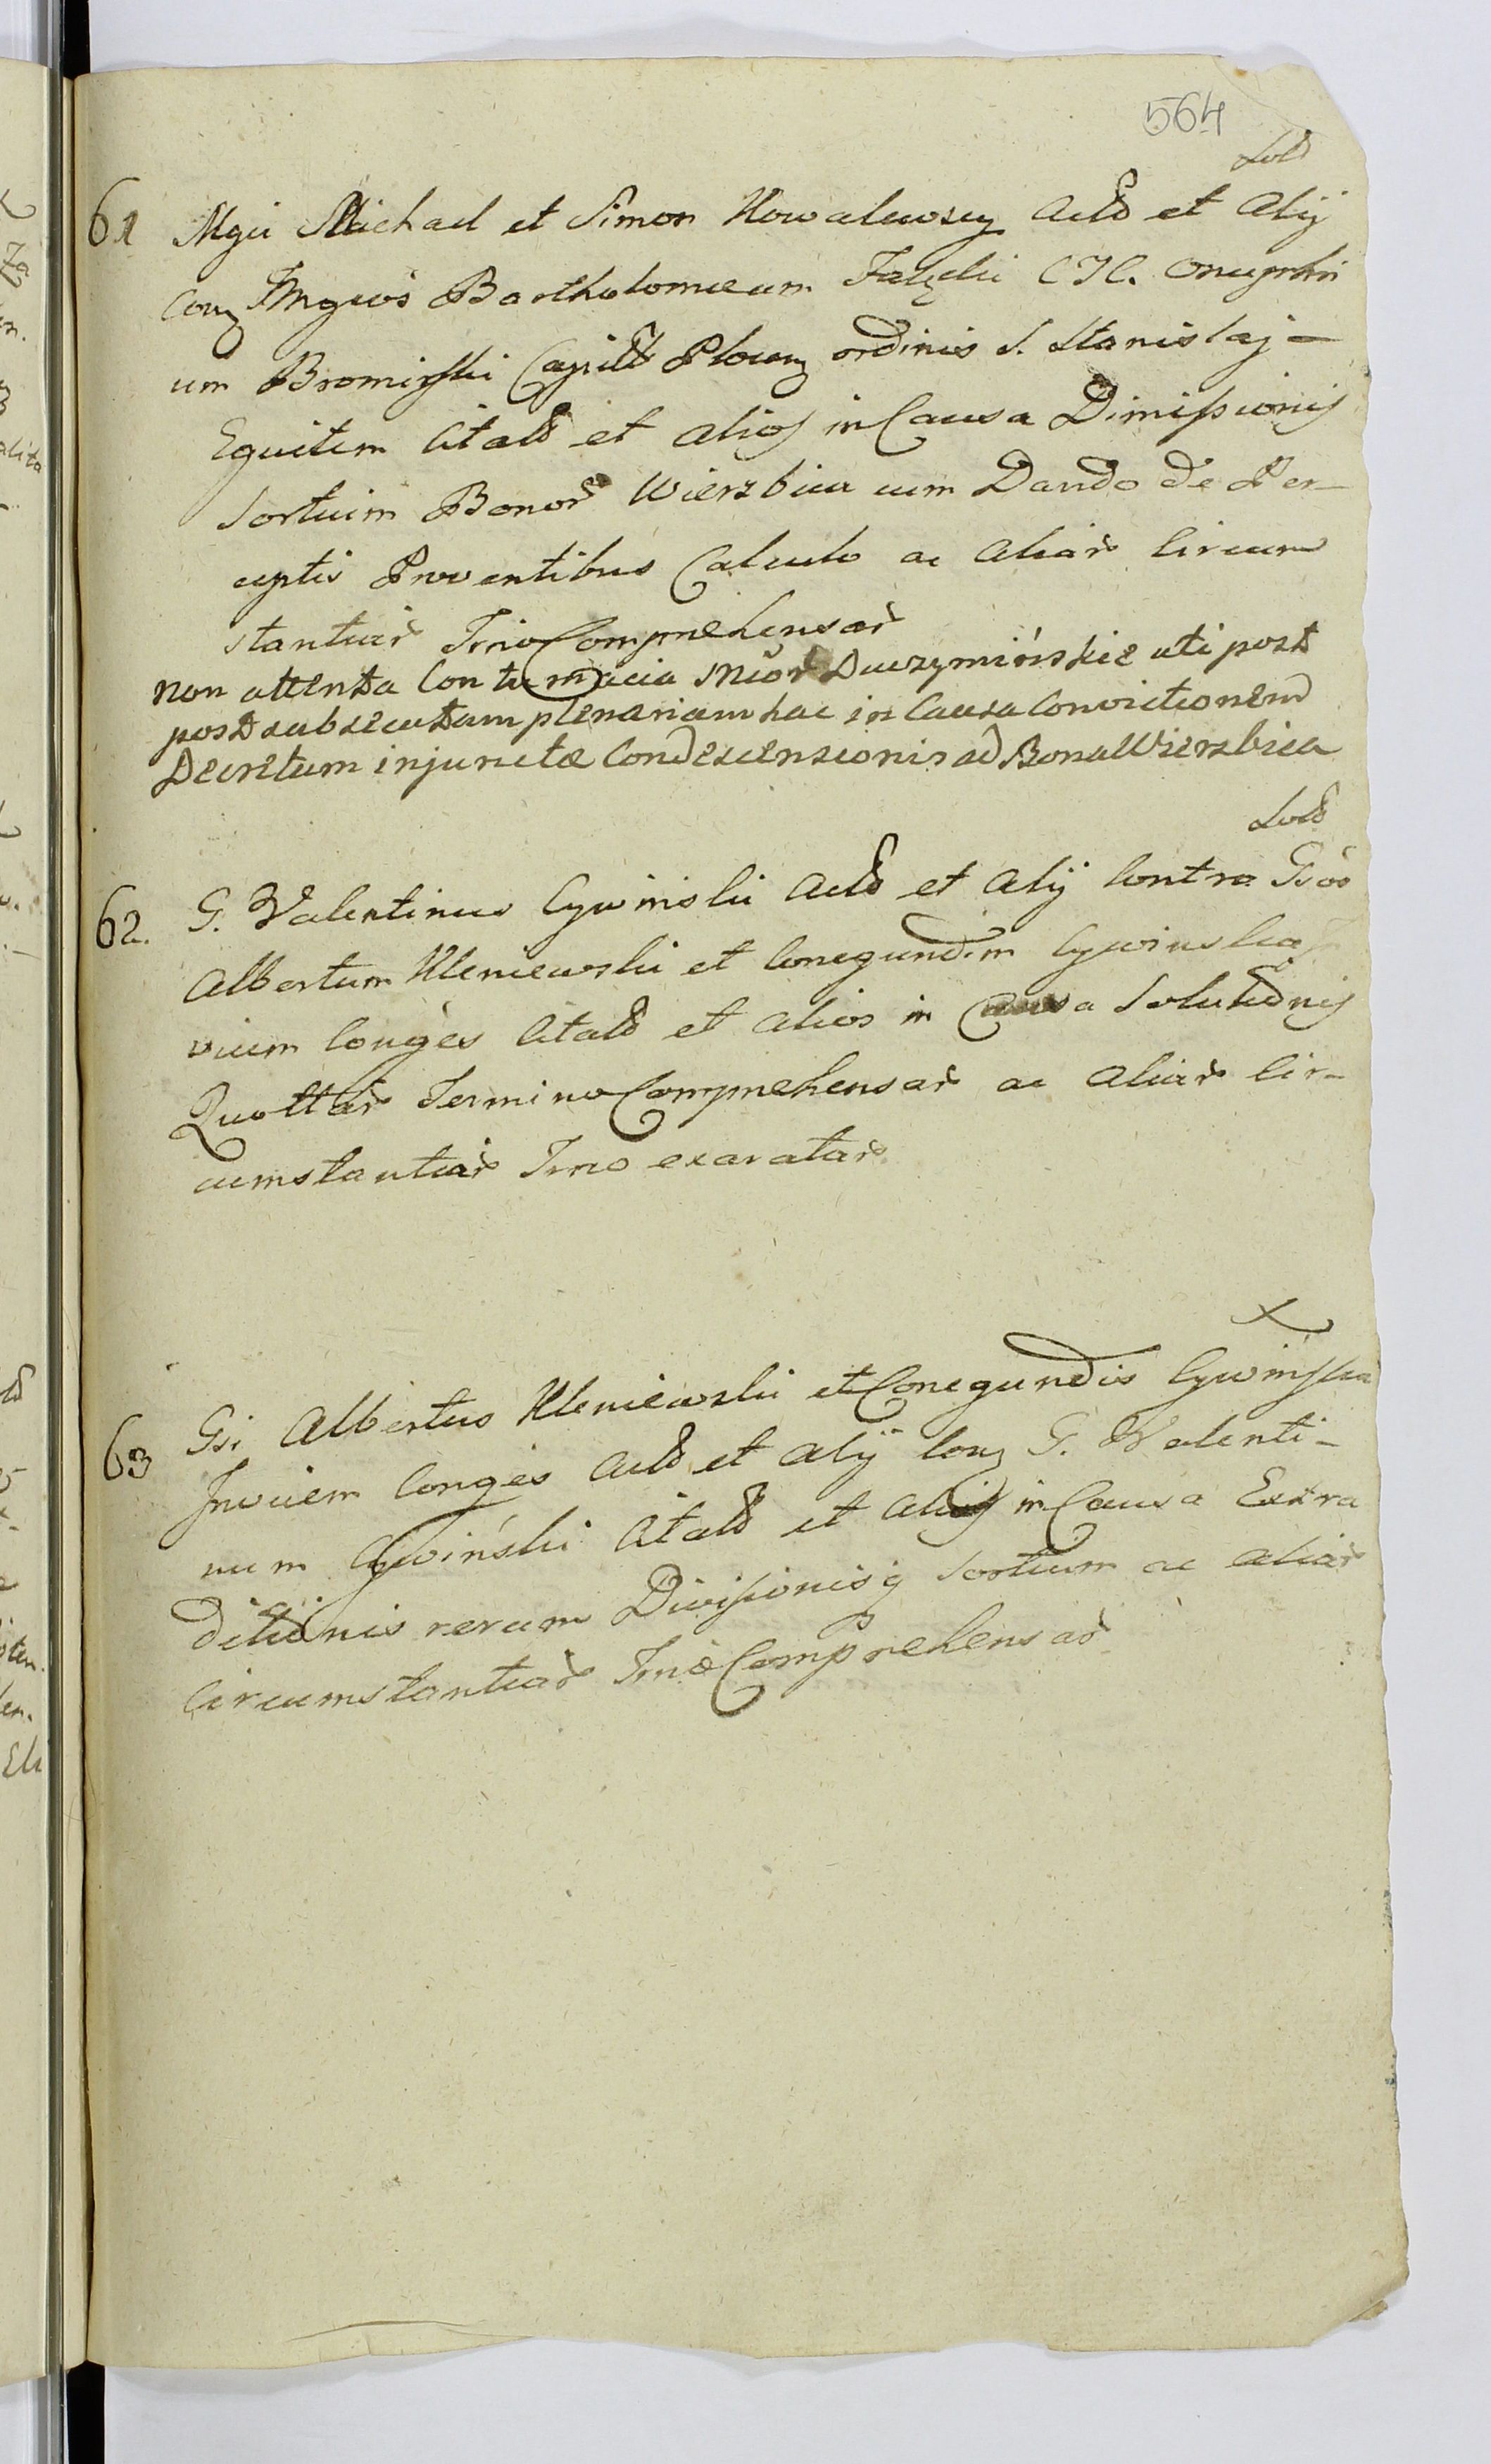 564
Sold
61 Mgci Michael et Simon Kowalewscy Actd et Alij
Con͠ Imgcos Bartholomæum Załęski CTC. Onuphri
um Bromirski Capitt Plocen͠ ordinis S. Stanislaj -
Equitem Citatt et alios in Causa Dimissionis
Sortium Bonor Wierzbica cum Dando de Per-
ceptis Proventibus Calculo ac aliar Circum
stantiar Trio Comprehensar
non attenta Contumacia Duczymińskie uti post
post subsecutam plenariam hac in Causa Convictionem
Decretum injunctæ Condescensionis ad Bona Wierzbica
Sold
62. G. Valentinus Cywinski Actd et Alij Contra Gsos
Albertum Kleniewski et Conegundim Cywinska
vicem Conges Citatt et alios in Causa Solutionis
Quottar Termino Comprehensar ac aliar Cir-
cumstantiar Trno exaratar
63 Gsi Albertus Kleniewski et Conegundis Cywinska
Invicem Conges Actd et Alij Con͠ G. Valenti-
num Cywiński Citatt et alios in Causa Extra
ditionis rerum Divisionisq Sortium ac aliar
Circumstantiar Trno Comprehensar